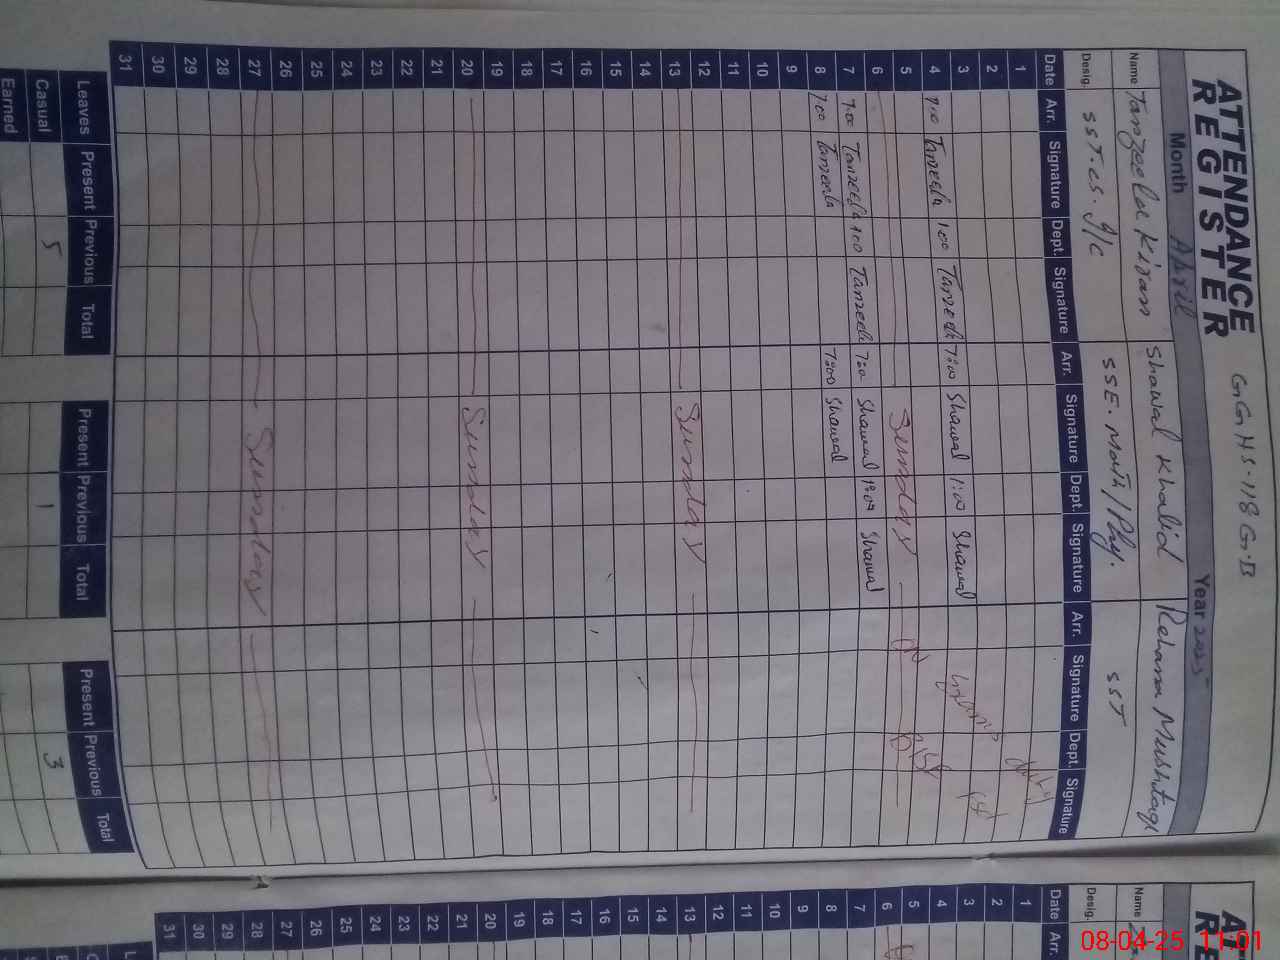 G.G.H.S-118 G.B
ATTENDANCE
REGISTER
Month April Year 2025
Name Tanzeela Kiran Shawal Khalid Rehana Mushtaq
Desig. SST.cs. I/C SSE. Math/Phy. SST
Date Arr. Signature Dept. Signature Arr. Signature Dept. Signature Arr. Signature Dept. Signature
1
2
3
4 7:00 Tanzeela 1:00 Tanzeela 7:00 Shawal 1:00 Shawal
5
6 Sunday
7 7:00 Tanzeela 1:00 Tanzeela 7:00 Shawal 1:00 Shawal
8 7:00 Tanzeela 7:00 Shawal
9
10
11
12
13 Sunday
14
15
16
17
18
19
20 Sunday
21
22
23
24
25
26
27 Sunday
28
29
30
31
on Exams duty
BISE
Leaves Present Previous Total Present Previous Total Present Previous Total
Casual 5 1 3
Earned
Date Arr.
Name
Desig.
1
2
3
4
5
6
7
8
9
10
11
12
13
14
15
16
17
18
19
20
21
22
23
24
25
26
27
28
29
30
31
08-04-25 11:01